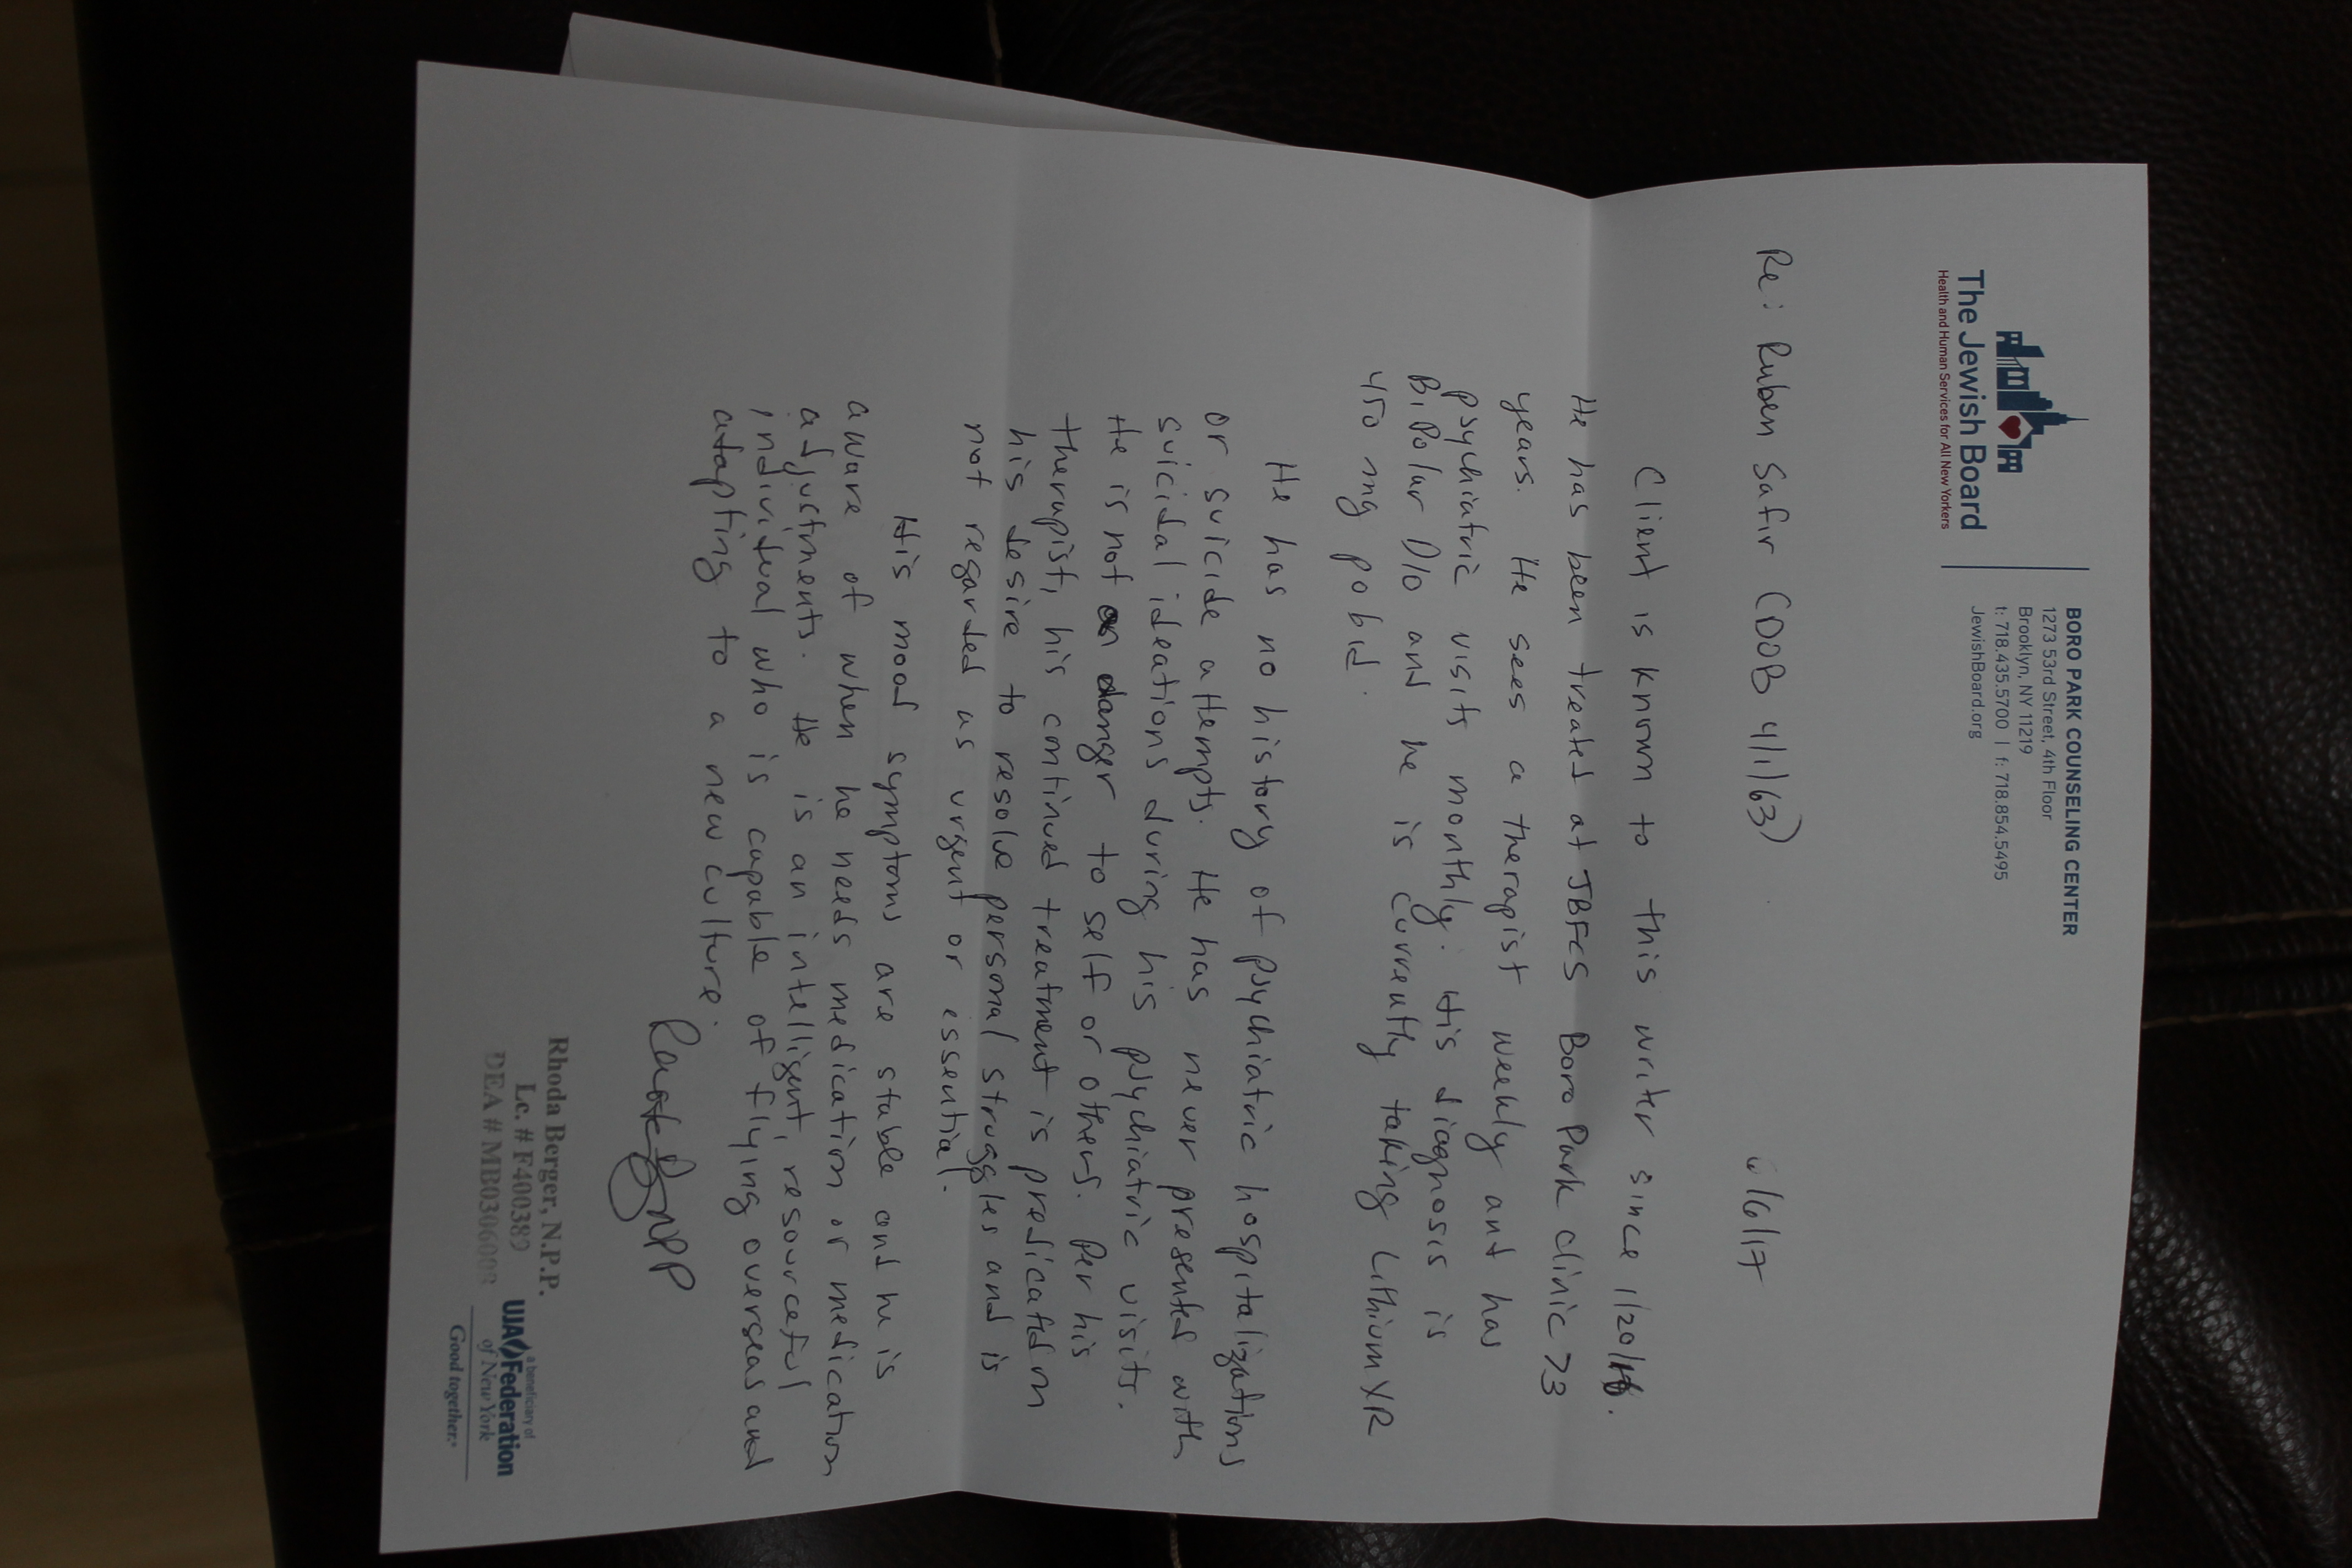 The Jewish Board
Health and Human Services for All New Yorkers
BORO PARK COUNSELING CENTER
1273 53rd Street, 4th Floor
Brooklyn, NY 11219
t: 718.435.5700 | f: 718.854.5495
JewishBoard.org
6/6/17
Re: Ruben Safir (DOB 4/1/63)
Client is known to this writer since 1/20/16.
He has been treated at JBFCS Boro Park Clinic >3
years. He sees a therapist weekly and has
psychiatric visits monthly. His diagnosis is
BiPolar D/O and he is currently taking Lithium XR
450 mg po bid.
He has no history of psychiatric hospitalizations
or suicide attempts. He has never presented with
suicidal ideations during his psychiatric visits.
He is not a danger to self or others. Per his
therapist, his continued treatment is predicated on
his desire to resolve personal struggles and is
not regarded as urgent or essential.
His mood symptoms are stable and he is
aware of when he needs medication or medication
adjustments. He is an intelligent, resourceful
individual who is capable of flying overseas and
adapting to a new culture.
NPP
Rhoda Berger, N.P.P.
Lc. # F400389
DEA # MB0306008
a beneficiary of
UJA Federation
of New York
Good together.